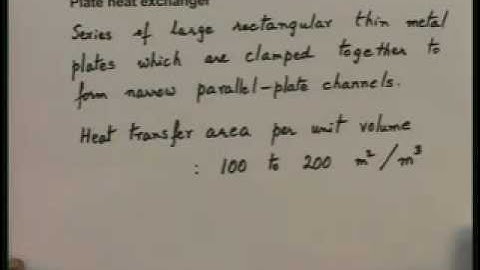 Plate heat exchanger
Series of large rectangular thin metal
plates which are clamped together to
form narrow parallel-plate channels.
Heat transfer area per unit volume
: 100 to 200 m²/m³